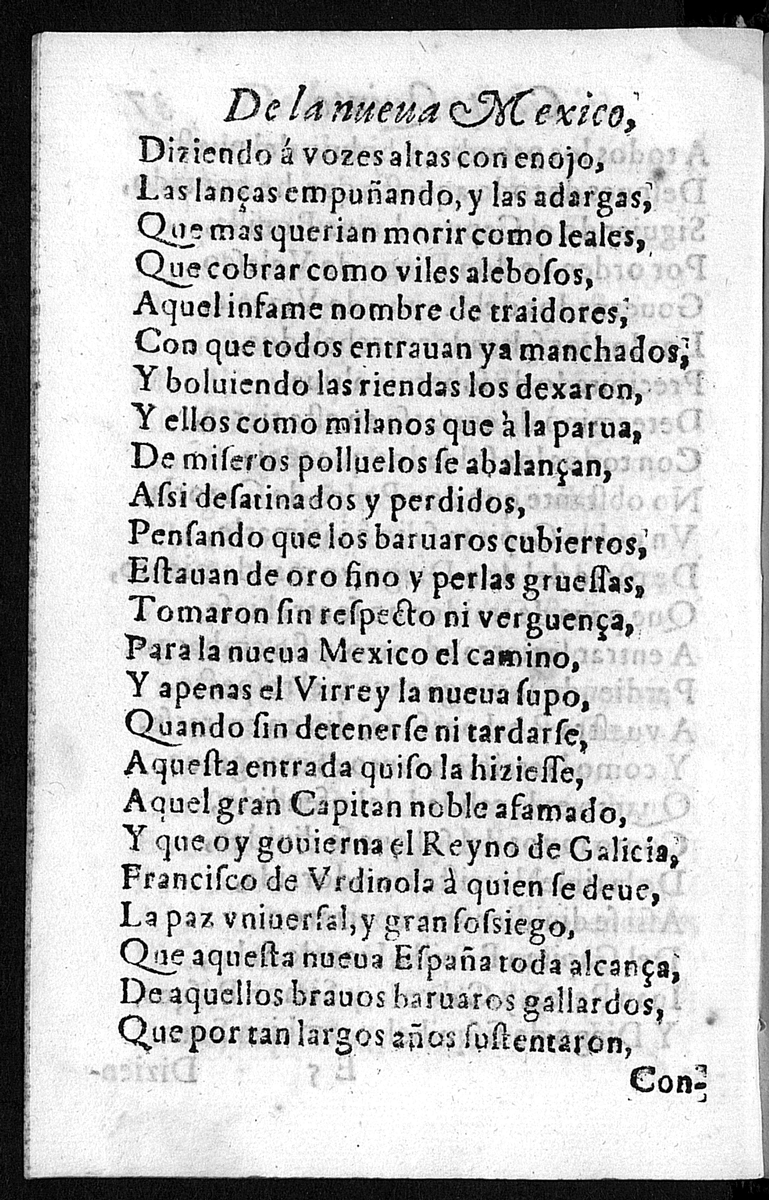 De la nueua Mexico,
Diziendo á vozes altas con enojo,
Las lanças empuñando, y las adargas,
Que mas querian morir como leales,
Que cobrar como viles aleboſos,
Aquel infame nombre de traidores,
Con que todos entrauan ya manchados,
Y boluiendo las riendas los dexaron,
Y ellos como milanos que à la parua,
De miſeros polluelos ſe abalançan,
Aſsi deſatinados y perdidos,
Penſando que los baruaros cubiertos,
Eſtauan de oro fino y perlas grueſſas,
Tomaron ſin reſpecto ni verguença,
Para la nueua Mexico el camino,
Y apenas el Virrey la nueua ſupo,
Quando ſin detenerſe ni tardarſe,
Aqueſta entrada quiſo la hizieſſe,
Aquel gran Capitan noble afamado,
Y que oy gouierna el Reyno de Galicia,
Franciſco de Vrdinola à quien ſe deue,
La paz vniuerſal, y gran ſoſsiego,
Que aqueſta nueua Eſpaña toda alcança,
De aquellos brauos baruaros gallardos,
Que por tan largos años ſuſtentaron,
Con-